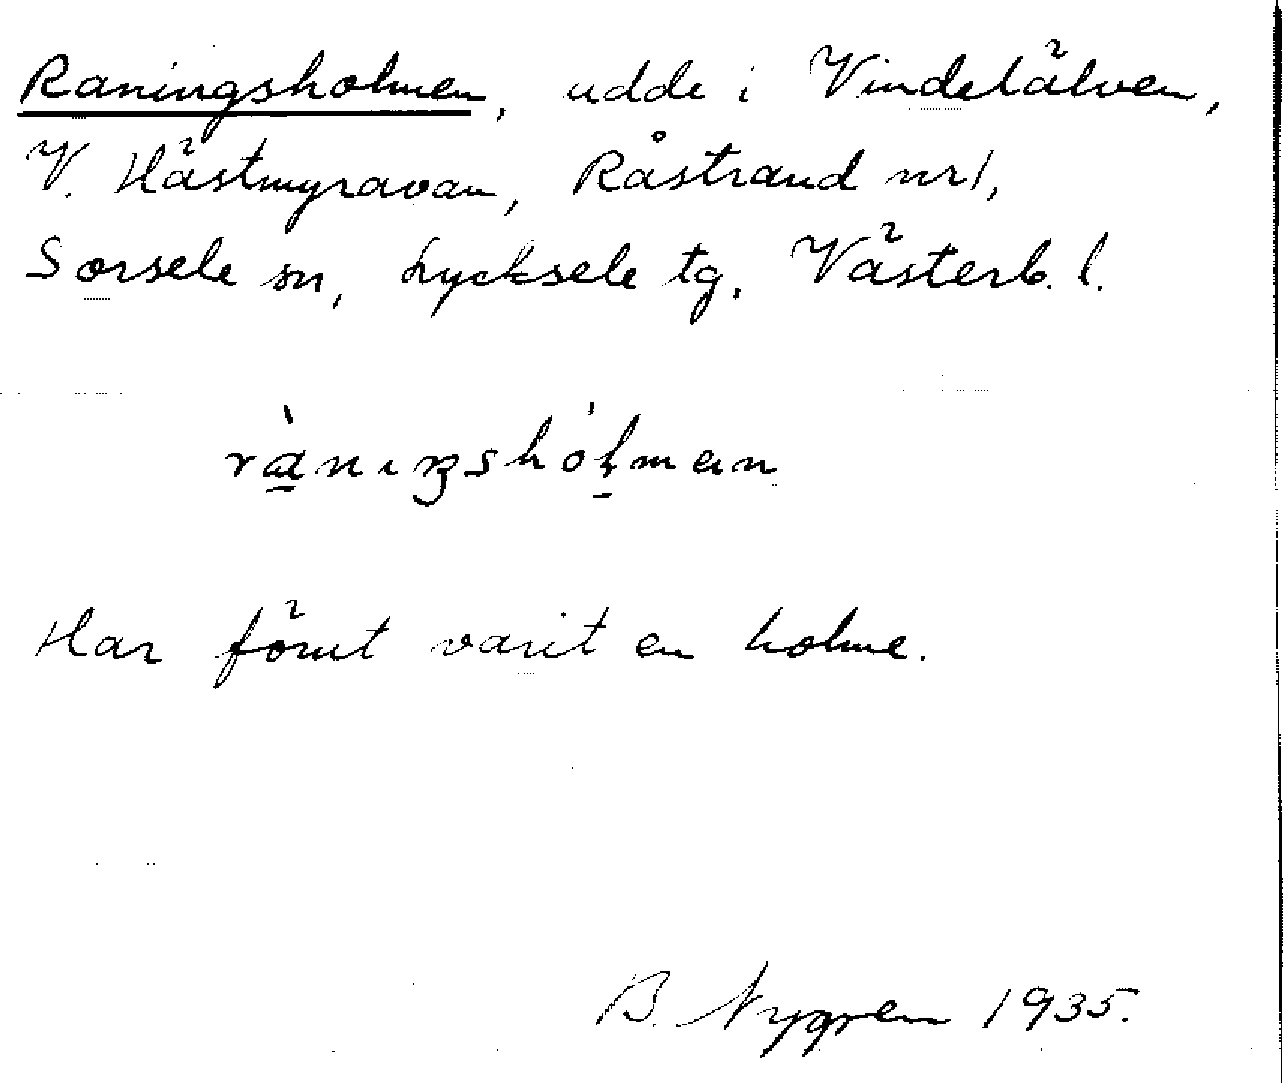 Raningsholmen, udde i Vindelälven,
V. Hästmyravan, Råstrand nr 1,
Sorsele sn, Lycksele tg. Västerb. l.
Har förut varit en holme.
B. Nygren 1935.